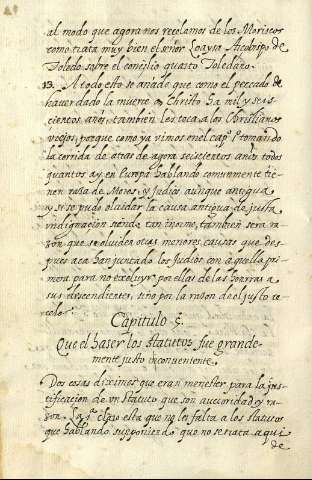 al modo que agora nos reçelamos de los Moriscos
como trata muy bien el señor Loaysa Arçobispo de
Toledo sobre el conçilio quarto Toledano.
13. A todo esto se añade que como el peccado de
haver dado la muerte a Christo ha mil y seis
cientos años, tambien les toca a los Christianos
viejos, porque como ya vimos en el cap.º 1 tomando
la corrida de atras de agora seiscientos años todos
quantos ay en Europa hablando comunmente tie-
nen rosa de Moros, y Judios aunque antigua
y si se pudo olvidar la causa antigua de justa
indignaçion siendo tan inorme, tambien sera ra-
zon que se olviden otras menores causas que des-
pues aca han juntado los Judios con aquella pri-
mera para no excluyr por ellas de las honrras a
sus descendientes, sino por la razon del justo re-
celo.
Capitulo ç.
Que el haser los statutos fue grande-
mente justo y conveniente.
Dos cosas diximos que eran menester para la jus-
tificacion de vn statuto que son auctoridad y ra-
zon. La 1.ª claro esta que no les falta a los statutos
que hablando, suponiendo que no se trata aqui
de